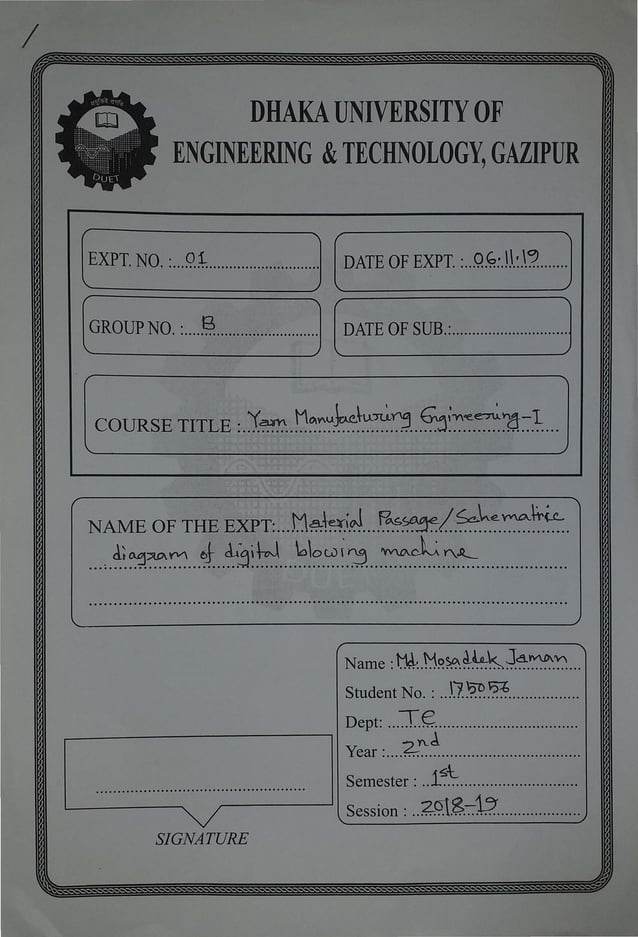 /
প্রযুক্তিই প্রগতি
DUET
DHAKA UNIVERSITY OF
ENGINEERING & TECHNOLOGY, GAZIPUR
EXPT. NO. : 01
DATE OF EXPT. : 06.11.19
GROUP NO. : B
DATE OF SUB.:
COURSE TITLE : Yarn Manufacturing Engineering-I
NAME OF THE EXPT: Material Passage/Schematric
diagram of digital blowing machine
DUET
Name : Md. Mosaddek Jaman
Student No. : 175056
Dept: TE
Year : 2nd
Semester : 1st
Session : 2018-19
SIGNATURE